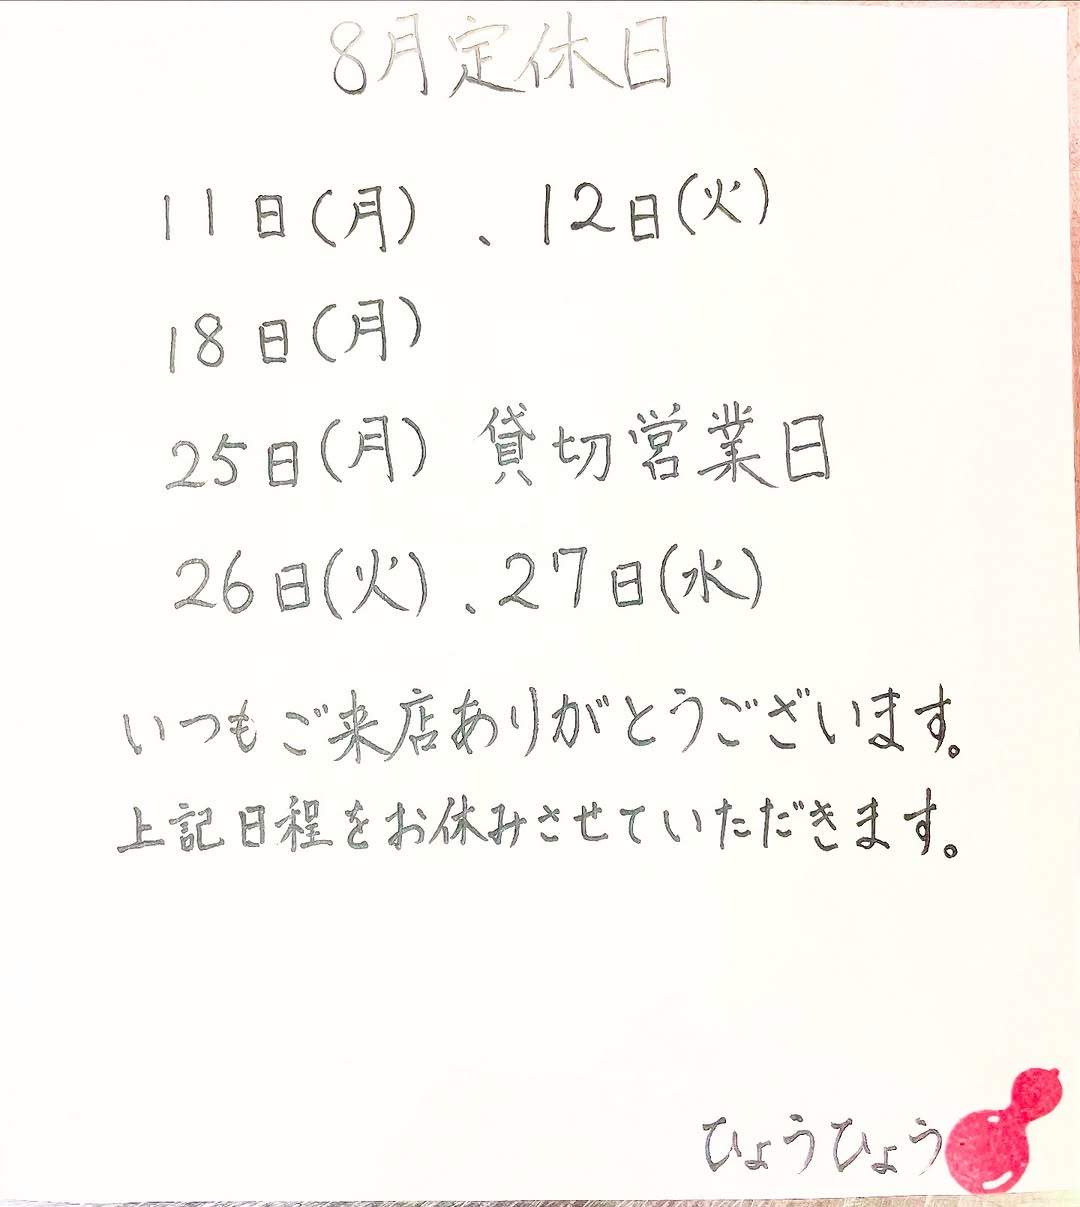 8月定休日
11日(月)、12日(火)
18日(月)
25日(月) 貸切営業日
26日(火)、27日(水)
いつもご来店ありがとうございます。
上記日程をお休みさせていただきます。
ひょうひょう